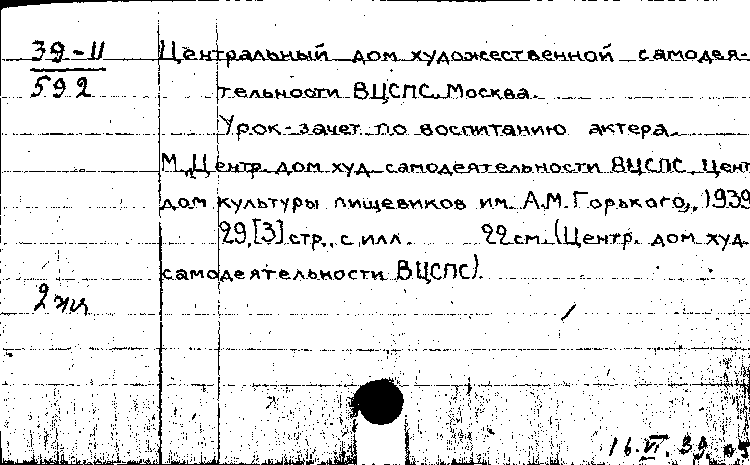 39-II
592
Центральный дом художественной самодея-
тельности ВЦСПС. Москва.
Урок-зачет по воспитанию актера.
М., Центр. дом худ. самодеятельности ВЦСПС, Цент
дом культуры пищевиков им. А.М. Горького, 1939
29, [3] стр. с илл. 22 см. (Центр. дом худ.
самодеятельности ВЦСПС).
16.VI.39